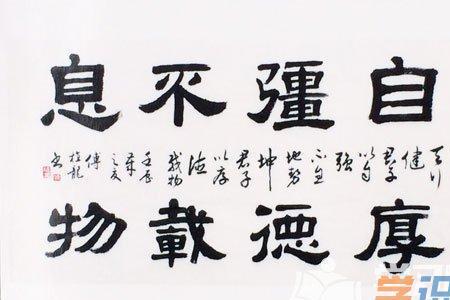 自彊不息
天行
健
君子
以自
强
不息
地势
坤
君子
以厚
德
载物
壬辰
之夏
傅
厚德載物
学识